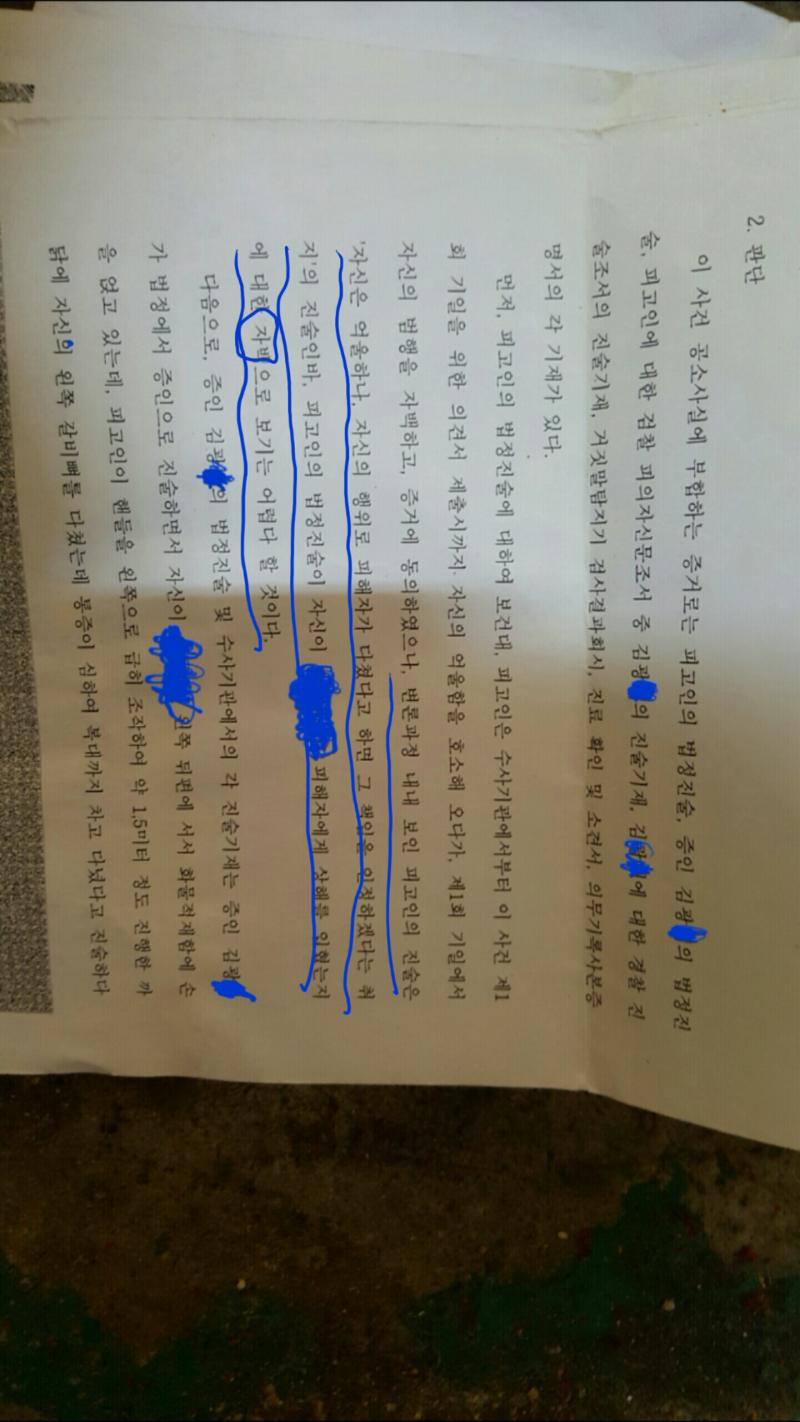 2. 판단
이 사건 공소사실에 부합하는 증거로는 피고인의 법정진술, 증인 김광의 법정진
술, 피고인에 대한 검찰 피의자신문조서 중 김광의 진술기재, 김에 대한 경찰 진
술조서의 진술기재, 거짓말탐지기 검사결과회시, 진료 확인 및 소견서, 의무기록사본증
명서의 각 기재가 있다.
먼저, 피고인의 법정진술에 대하여 보건대, 피고인은 수사기관에서부터 이 사건 제1
회 기일을 위한 의견서 제출시까지 자신의 억울함을 호소해 오다가, 제1회 기일에서
자신의 범행을 자백하고, 증거에 동의하였으나, 변론과정 내내 보인 피고인의 진술은
'자신은 억울하나, 자신의 행위로 피해자가 다쳤다고 하면 그 책임은 인정하겠다는 취
지'의 진술인바, 피고인의 법정진술이 자신이 피해자에게 상해를 입혔는지
에 대한 자백으로 보기는 어렵다 할 것이다.
다음으로, 증인 김광의 법정진술 및 수사기관에서의 각 진술기재는 증인 김광
가 법정에서 증인으로 진술하면서 자신이 왼쪽 뒤편에 서서 화물적재함에 손
을 얹고 있는데, 피고인이 핸들을 왼쪽으로 급히 조작하여 약 1.5미터 정도 진행한 까
닭에 자신의 왼쪽 갈비뼈를 다쳤는데 통증이 심하여 복대까지 차고 다녔다고 진술하다